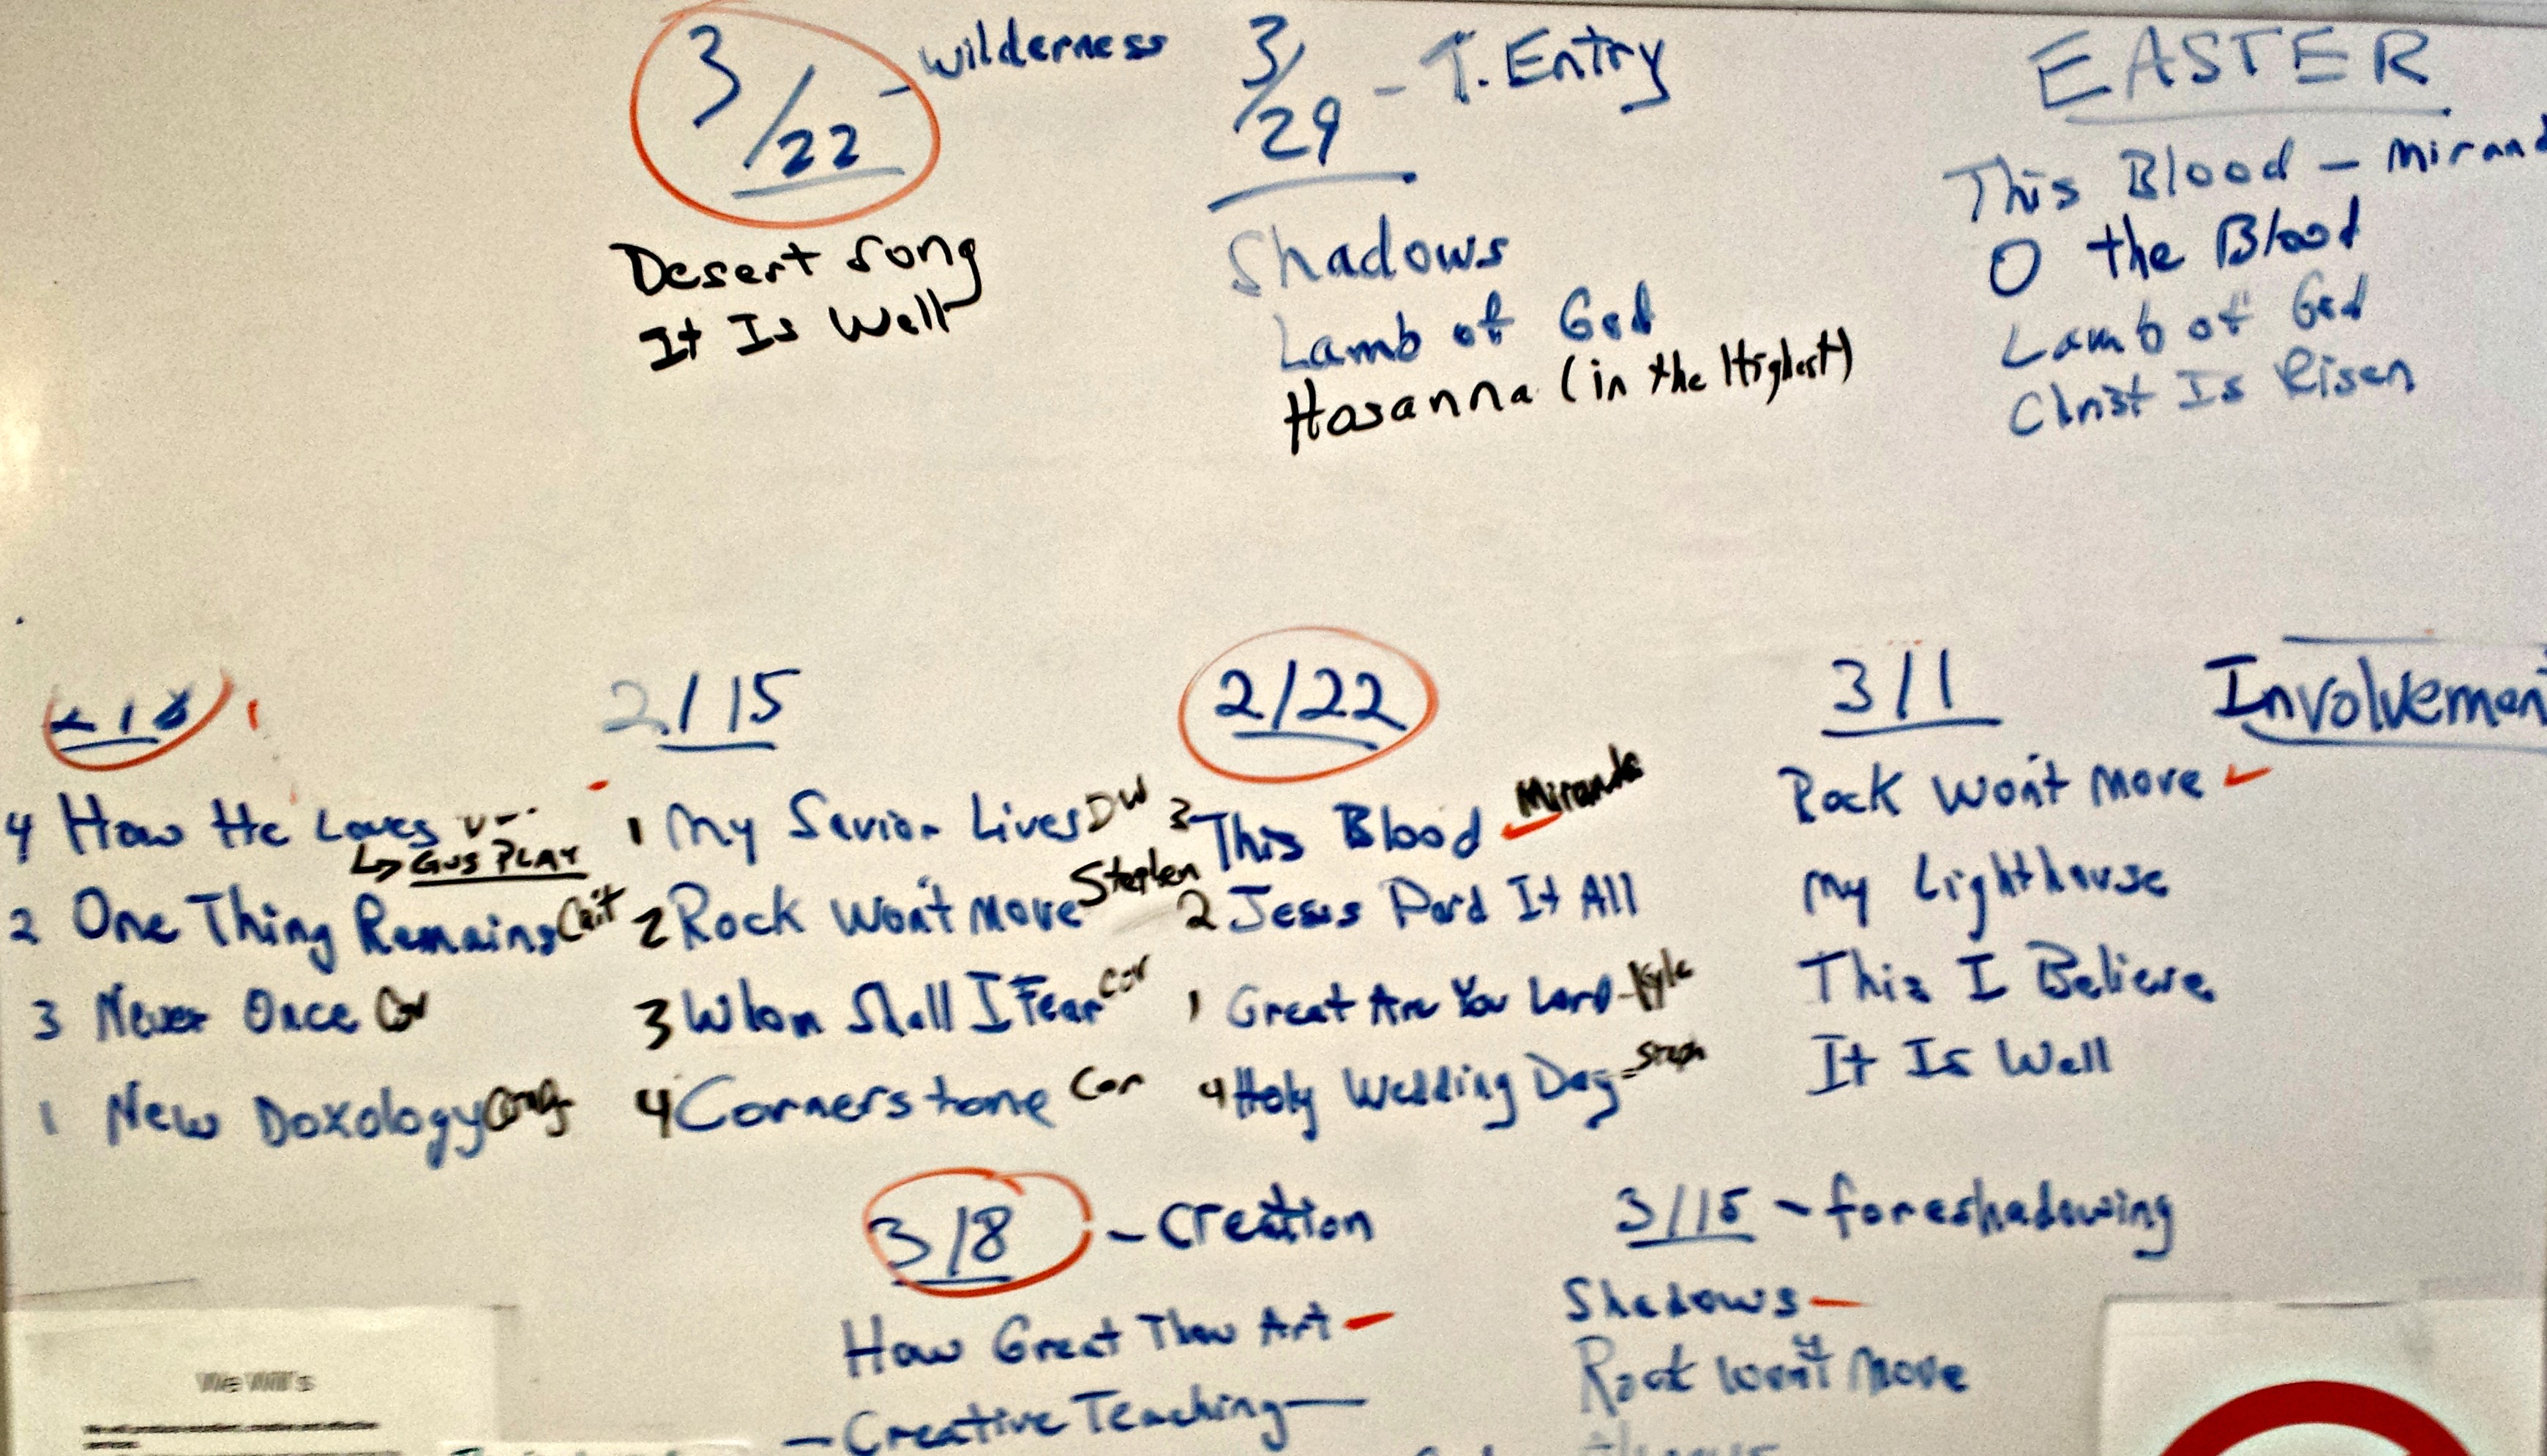 3/22 - wilderness
Desert Song
It Is Well
3/29 - T. Entry
Shadows
Lamb of God
Hosanna (in the Highest)
EASTER
This Blood - Mirand
O the Blood
Lamb of God
Christ Is Risen
4 How He Loves
↳ GUS PLAY
2 One Thing Remains Cait
3 Never Once Cor
1 New Doxology
2/15
1 My Savior Lives DW
2 Rock Won't Move Stephen
3 Whom Shall I Fear Cor
4 Cornerstone Cor
2/22
3 This Blood Miranda
2 Jesus Paid It All
1 Great Are You Lord - Kyle
4 Holy Wedding Day - Steph
3/1
Rock Won't Move
My Lighthouse
This I Believe
It Is Well
Involvemen
3/8 - Creation
How Great Thou Art -
- Creative Teaching -
3/15 - foreshadowing
Shadows -
Rock Won't Move
We Will's